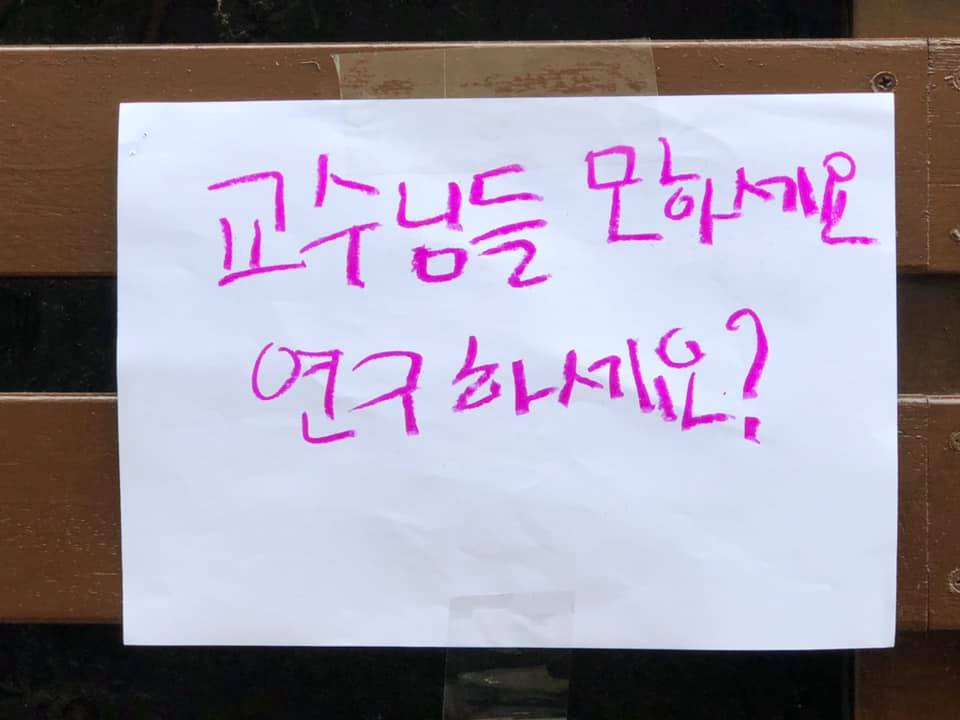 교수님들 모하세요
연구하세요?